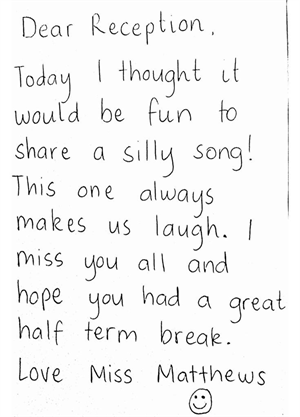 Dear Reception,
Today I thought it
would be fun to
share a silly song!
This one always
makes us laugh. I
miss you all and
hope you had a great
half term break.
Love Miss Matthews